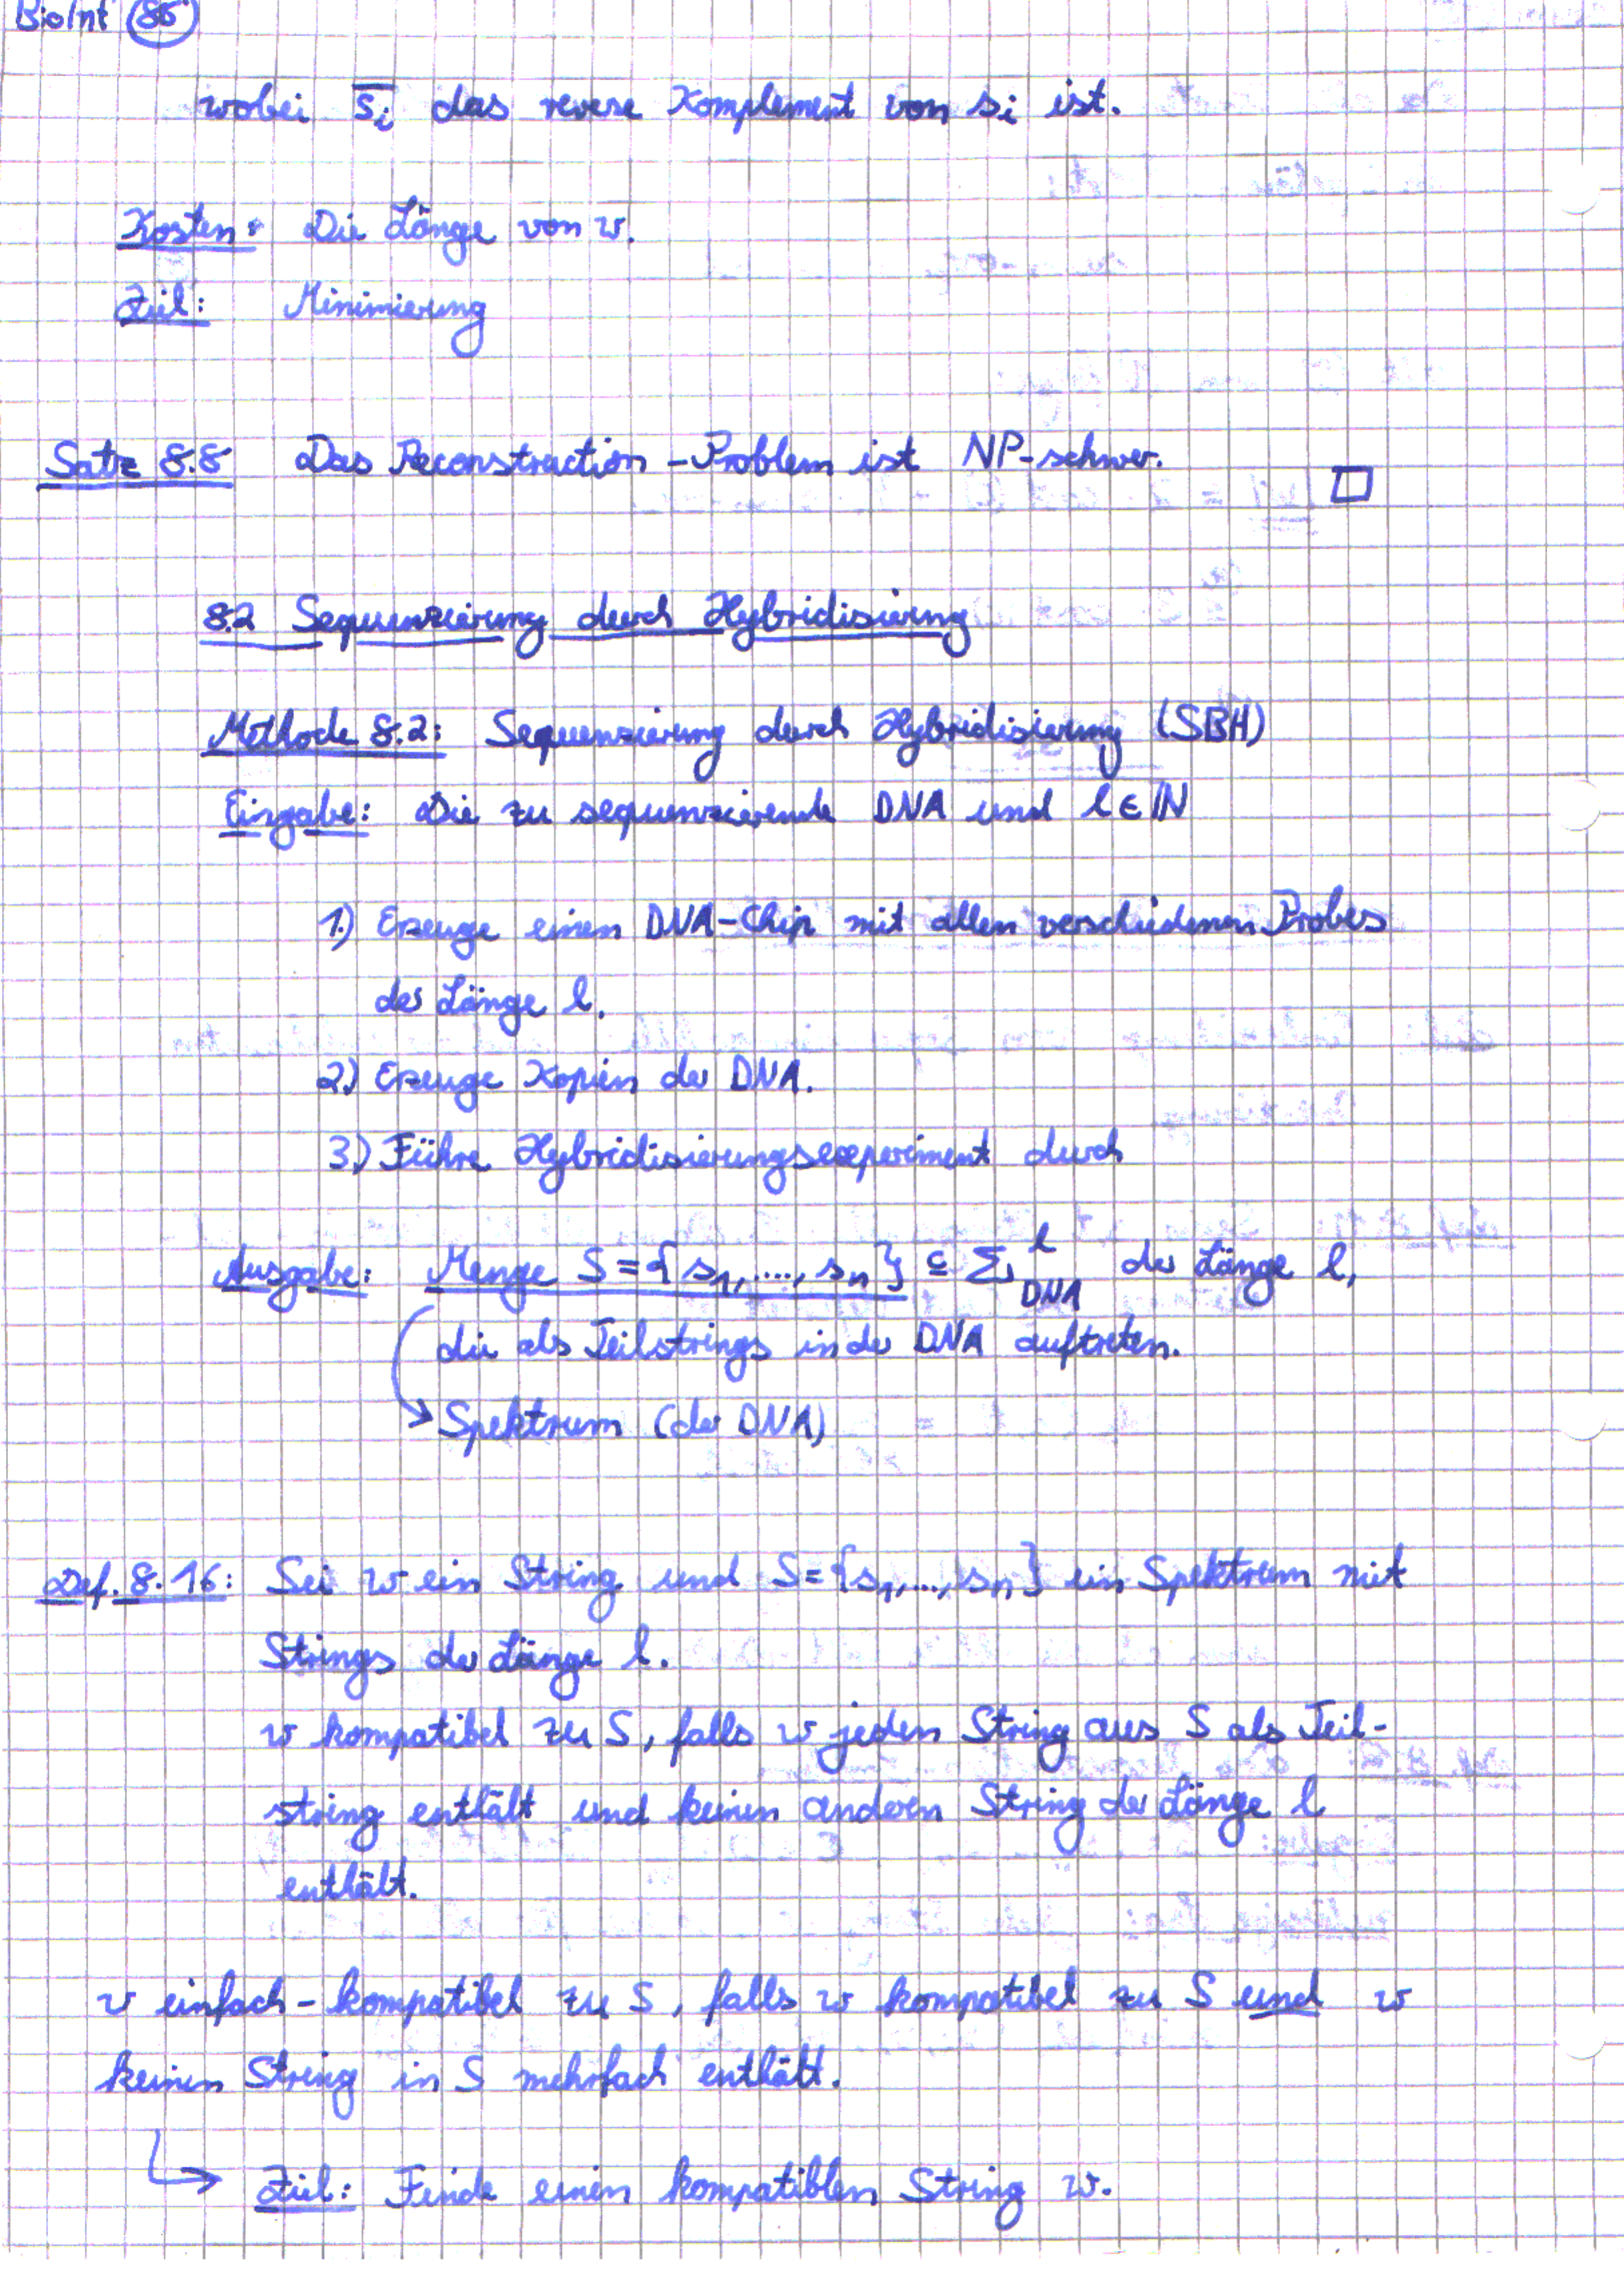 BioInf 86
wobei s̅ᵢ das reverse Komplement von sᵢ ist.
Kosten: Die Länge von w.
Ziel: Minimierung
Satz 8.8 Das Reconstruction-Problem ist NP-schwer. □
8.2 Sequenzierung durch Hybridisierung
Methode 8.2: Sequenzierung durch Hybridisierung (SBH)
Eingabe: Die zu sequenzierende DNA und l ∈ ℕ
1.) Erzeuge einen DNA-Chip mit allen verschiedenen Probes
der Länge l.
2.) Erzeuge Kopien der DNA.
3.) Führe Hybridisierungsexperiment durch
Ausgabe: Menge S = {s₁, ..., sₙ} ⊆ Σ_DNA^l der Länge l,
die als Teilstrings in der DNA auftreten.
→ Spektrum (der DNA)
Def. 8.16: Sei w ein String und S = {s₁, ..., sₙ} ein Spektrum mit
Strings der Länge l.
w kompatibel zu S, falls w jeden String aus S als Teil-
string enthält und keinen andern String der Länge l
enthält.
w einfach-kompatibel zu S, falls w kompatibel zu S und w
keinen String in S mehrfach enthält.
→ Ziel: Finde einen kompatiblen String w.